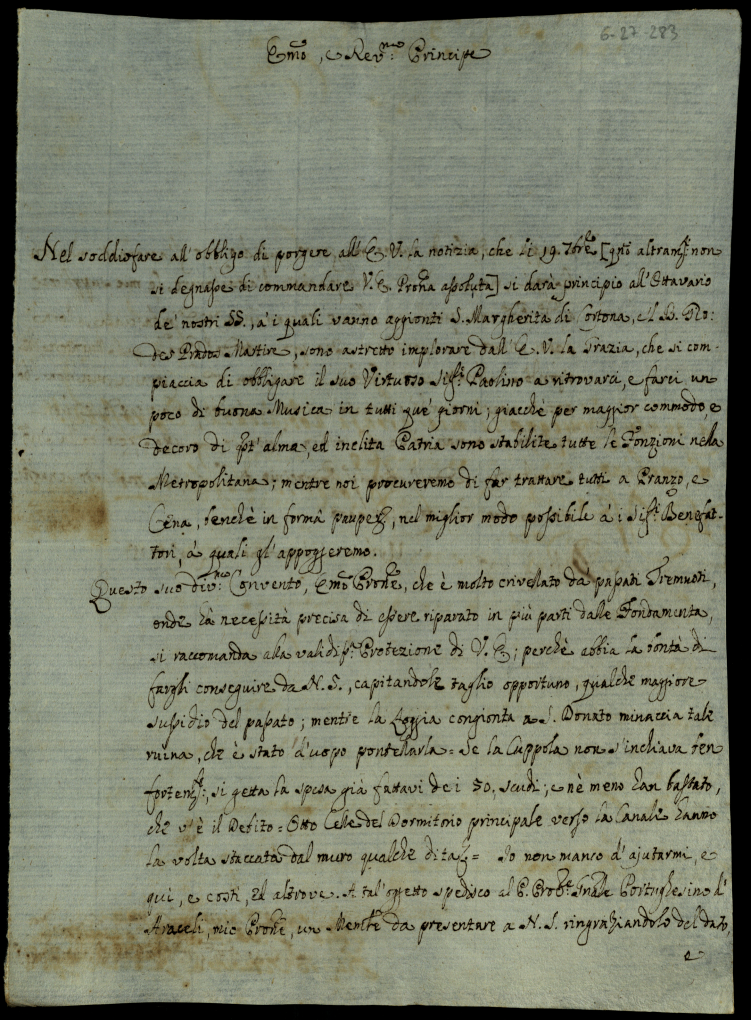 6-27-283
Emõ, e Rev.mo Principe
Nel soddisfare all'obbligo di porgere all'E. V. la notizia, che li 19. 7bre [qñ altramte non
si degnasse di commandare V. E. Prona assoluta] si darà principio all'Ottavario
de' nostri SS., a' i quali vanno aggionti S. Margherita di Cortona, e'l B. Gio:
de Prado Martire, sono astretto implorare dall'E. V. la Grazia, che si com-
piaccia di obbligare il suo Virtuoso Sigr. Paolino a ritrovarci, e farci un
poco di buona Musica in tutti que' giorni; giacchè per maggior commodo, e
decoro di qst'alma, ed inclita Patria sono stabilite tutte le Fonzioni nella
Metropolitana; mentre noi procureremo di far trattare tutti a Pranzo, e
Cena, benchè in formâ paupe, nel miglior modo possibile a' i Sigri. Benefat-
tori, a' quali gl'appoggieremo.
Questo suo divmo: Convento, Emõ Prone, che è molto crivellato da' passati Tremuoti,
onde hà necessità precisa di essere riparato in più parti dalle Fondamenta,
si raccomanda alla validissa. Protezione di V. E.; perchè abbia la bontà di
fargli conseguire da N. S., capitandole taglio opportuno, qualche maggiore
sussidio del passato; mentre la Loggia congionta a S. Donato minaccia tale
ruina, che è stato d'uopo pontellarla = Se la Cuppola non s'inchiava ben
fortemte:, si getta la spesa già fattavi de i 50, scudi; e nè meno han bastato,
che v'è il Debito = Otto Celle del Dormitorio principale verso la Canale hanno
la volta staccata dal muro qualche dita = Io non manco d'ajutarmi, e
qui, e costì, ed altrove. A tal'oggetto spedisco al P. Generale Portughesino d'
Araceli, mio Prone, un Memle da presentare a N. S. ringraziandolo del dato,
e